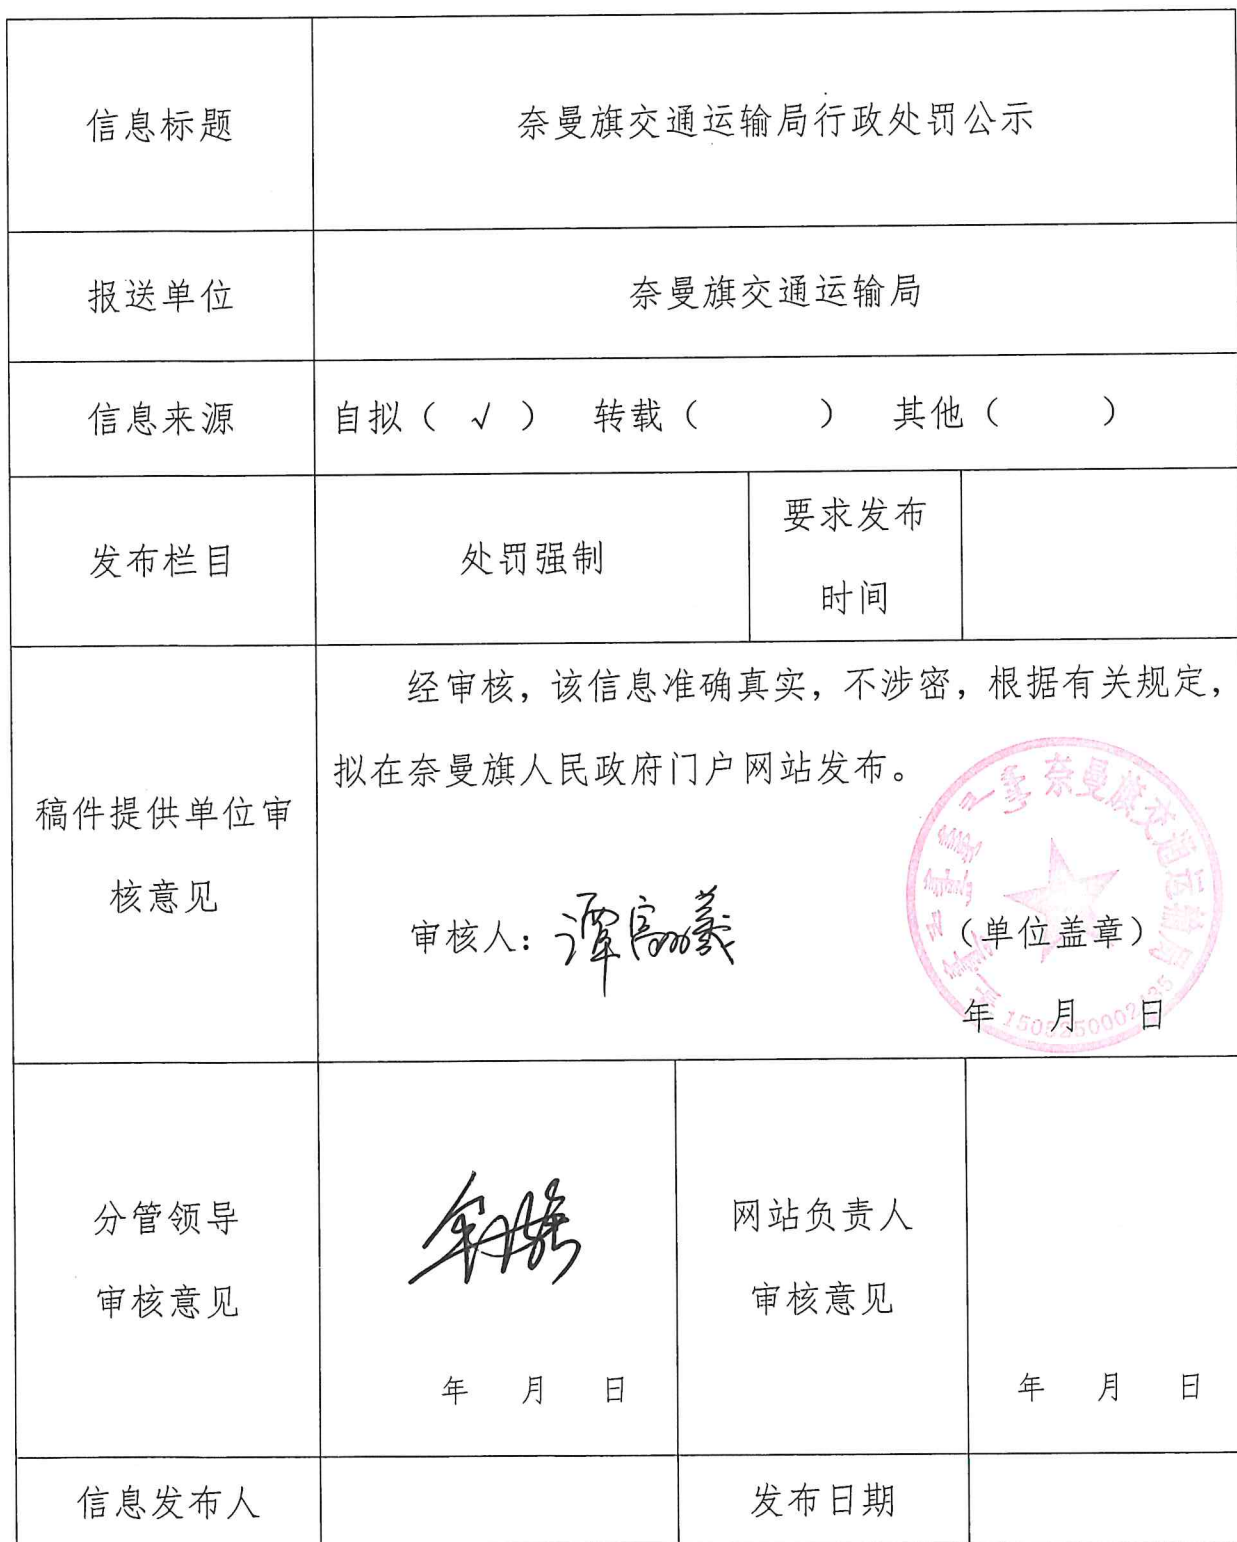 信息标题
奈曼旗交通运输局行政处罚公示
报送单位
奈曼旗交通运输局
信息来源
自拟（ √ ） 转载（ ） 其他（ ）
发布栏目
处罚强制
要求发布
时间
稿件提供单位审
核意见
经审核，该信息准确真实，不涉密，根据有关规定，
拟在奈曼旗人民政府门户网站发布。
审核人：
奈曼旗交通运输局
（单位盖章）
年 月 日
分管领导
审核意见
年 月 日
网站负责人
审核意见
年 月 日
信息发布人
发布日期